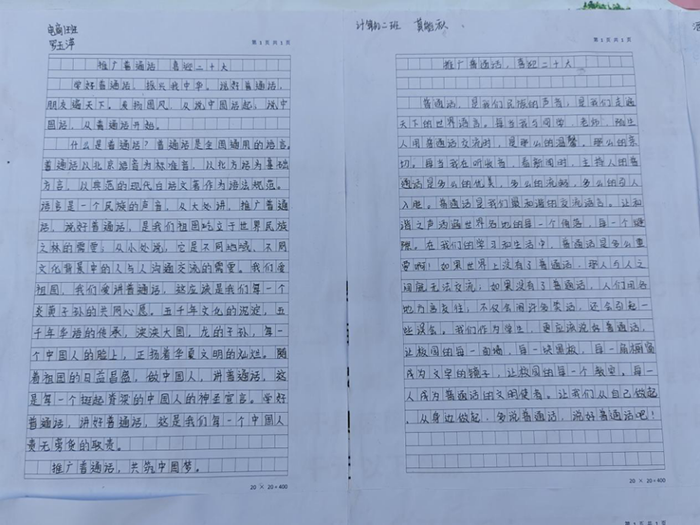 电商班
罗玉萍
第1页共1页
推广普通话 喜迎二十大
学好普通话，振兴我中华。说好普通话，
朋友遍天下。爱我国风，从说中国话起；说中
国话，从普通话开始。
什么是普通话？普通话是全国通用的语言。
普通话以北京语音为标准音，以北方话为基础
方言，以典范的现代白话文著作为语法规范。
语言是一个民族的声音，从大处讲，推广普通
话，说好普通话，是我们祖国屹立于世界民族
之林的需要；从小处说，它是不同地域、不同
文化背景中的人与人沟通交流的需要。我们爱
祖国，我们爱讲普通话，这应该是我们每一个
炎黄子孙的共同心愿。五千年文化的沉淀，五
千年华语的传承，泱泱大国，龙的子孙，每一
个中国人的脸上，正扬着华夏文明的灿烂。随
着祖国的日益昌盛，做中国人，讲普通话，这
是每一个挺起脊梁的中国人的神圣宣言。学好
普通话，讲好普通话，这是我们每一个中国人
责无旁贷的职责。
推广普通话，共筑中国梦。
20 × 20=400
计算机二班
第1页共1页
推广普通话，喜迎二十大
普通话，是我们民族的声音，是我们走遍
天下的世界语言。每当我与同学、老师、陌生
人用普通话交流时，是那么的温馨，那么的亲
切。每当我在听收音、看新闻时，主持人的普
通话是多么的优美，多么的流畅，多么的引人
入胜。普通话是我们最和谐的交流语言。让和
谐之声洒遍世界各地的每一个角落，每一个缝
隙。在我们的学习和生活中，普通话是多么重
要啊！如果世界上没有了普通话，那人与人之
间就无法交流；如果没有了普通话，人们用各
地方言交往，不仅会闹许多笑话，还会引起一
些误会。我们作为学生，更应该说好普通话，
让校园的每一面墙，每一块黑板，每一扇橱窗
成为文字的镜子，让校园的每一个教室，每一
人成为普通话的文明使者。让我们从自己做起
，从身边做起，多说普通话，说好普通话吧！
20 × 20=400
第1页共1页